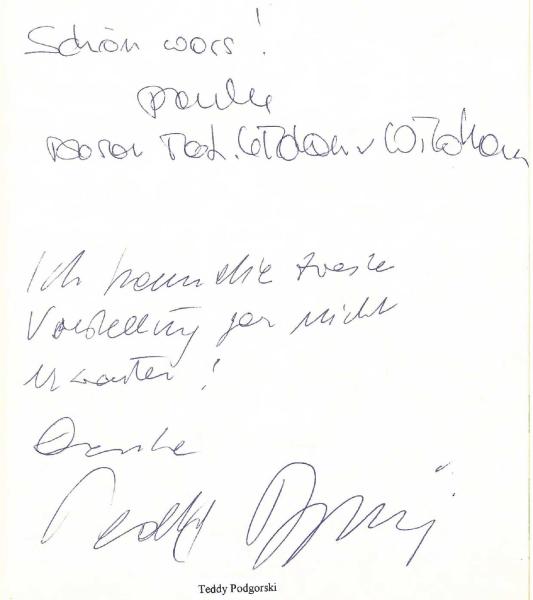 Schön wars!
Danke
Ich kann die zweite
Vorstellung gar nicht
erwarten!
Danke
Teddy Podgorski
Teddy Podgorski